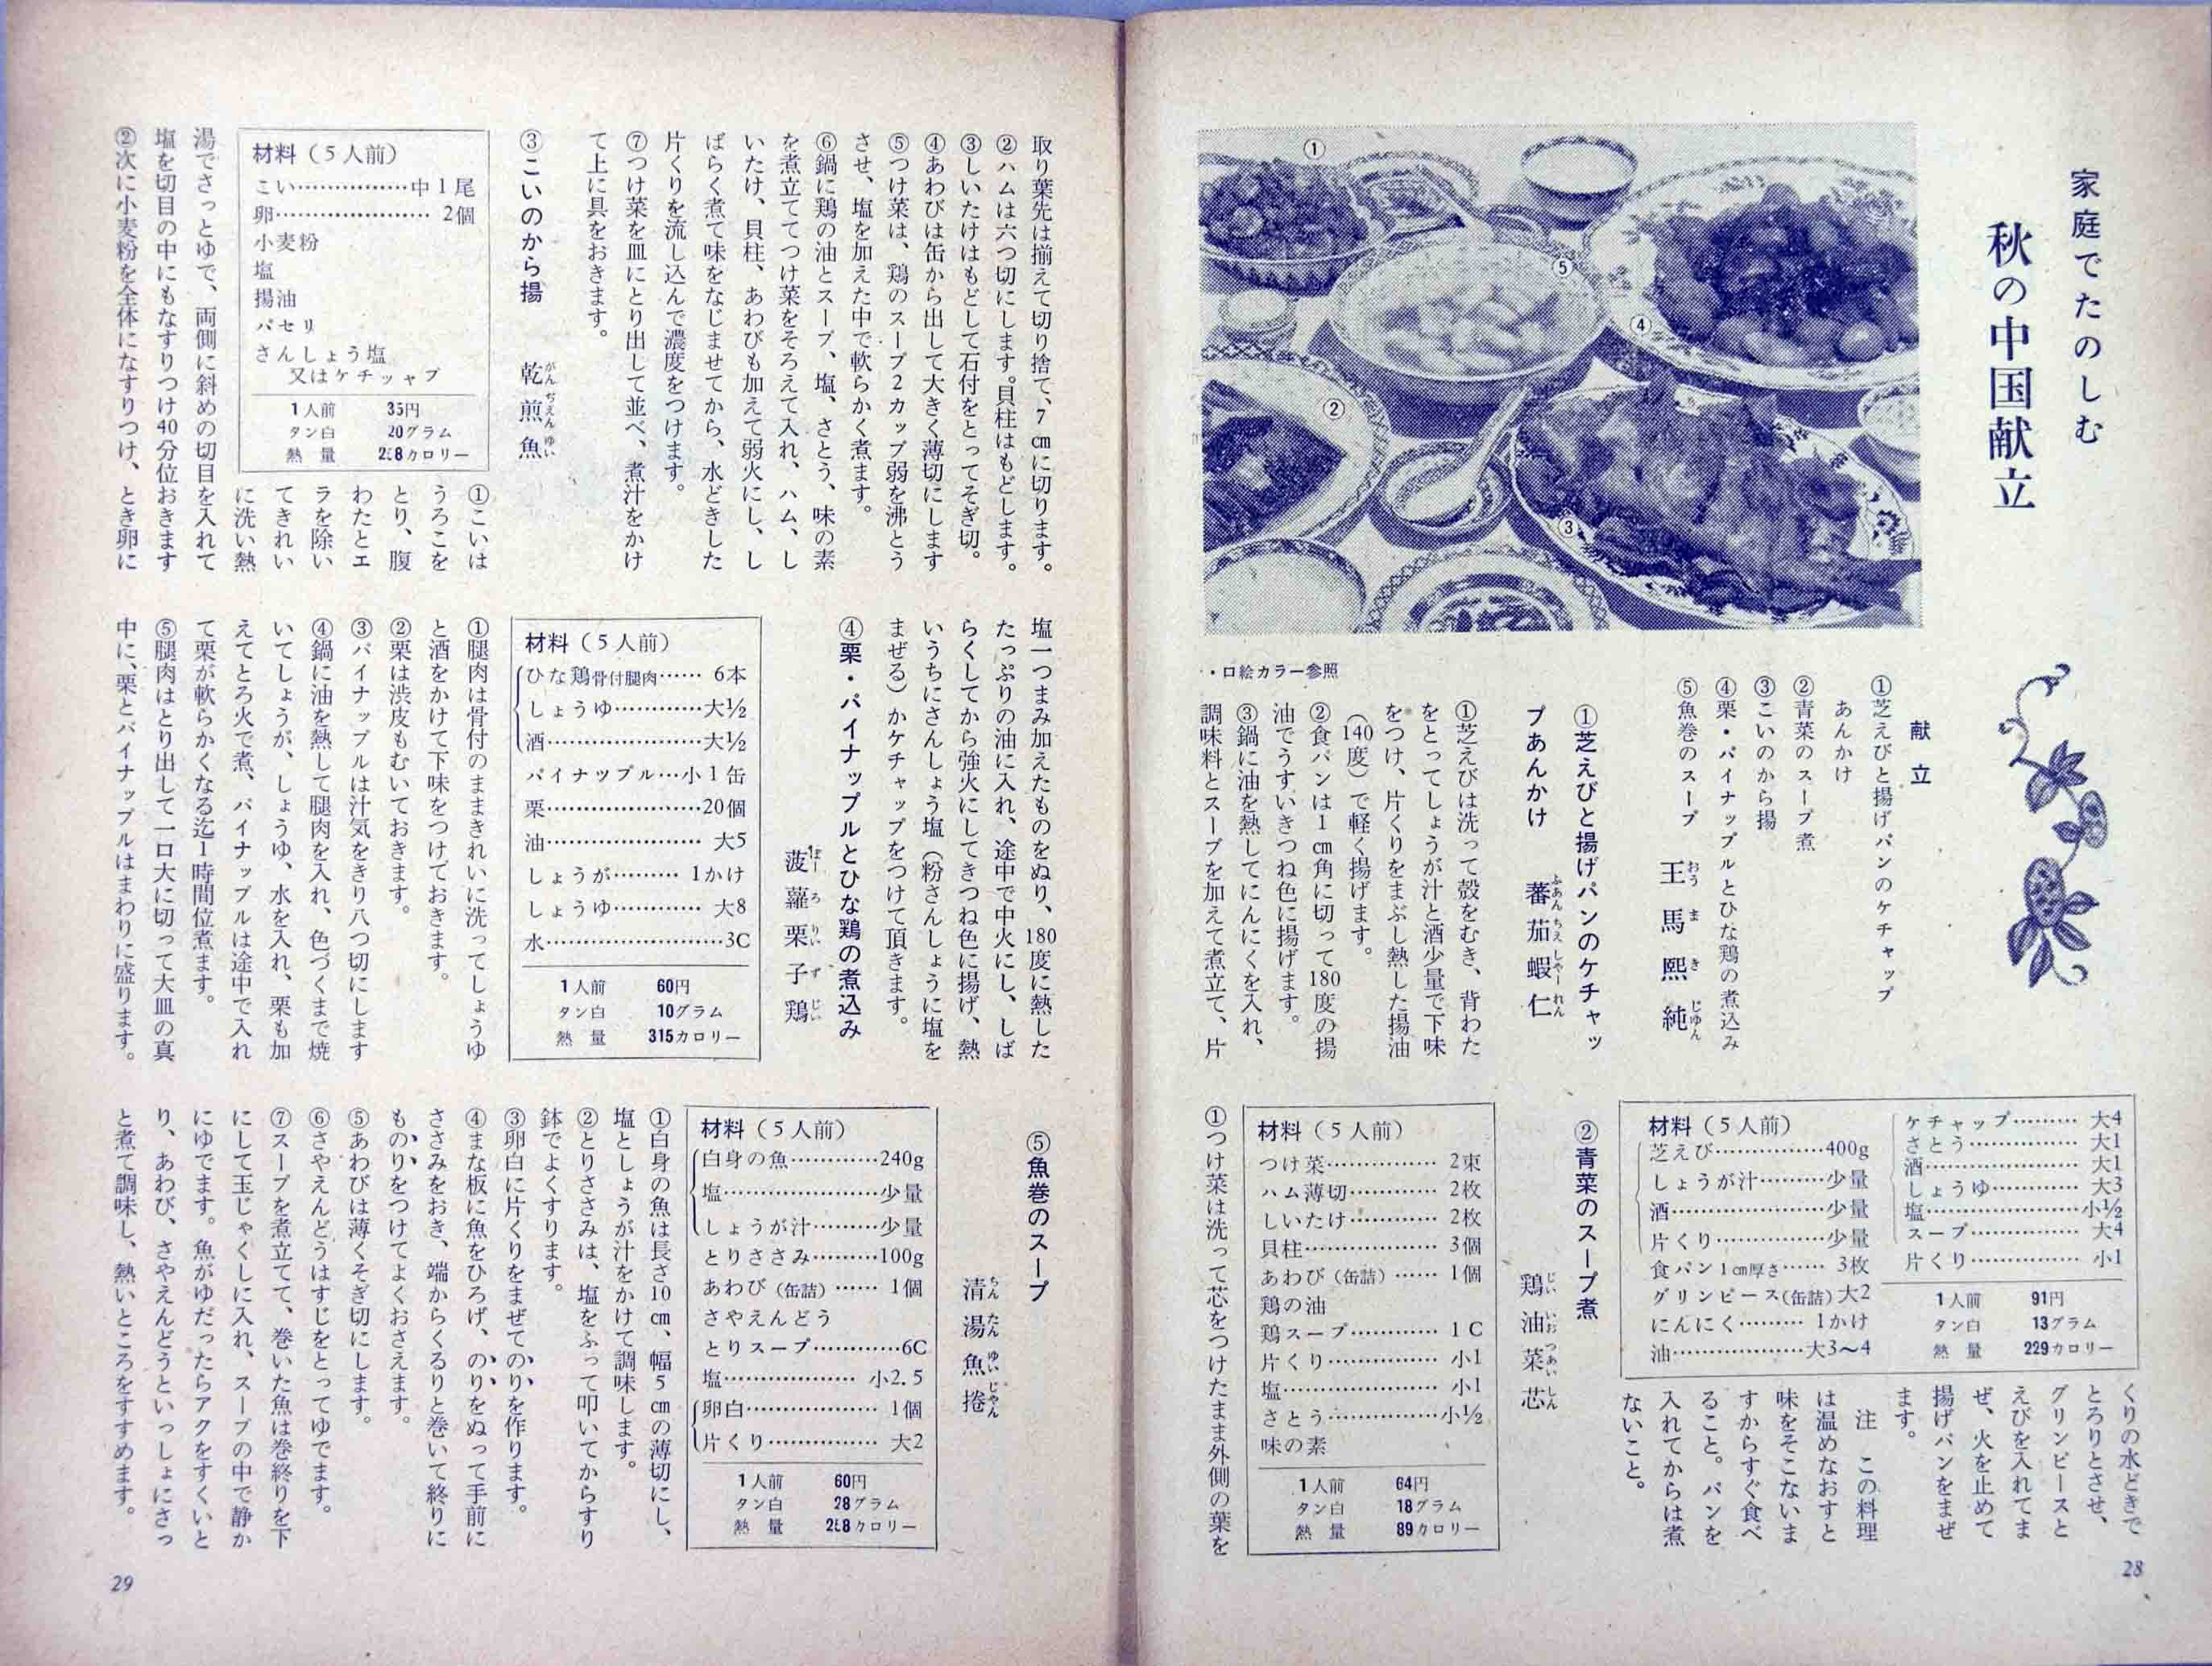 家庭でたのしむ
秋の中国献立
①
⑤
④
②
③
・・口絵カラー参照
献立
①芝えびと揚げパンのケチャップ
あんかけ
②青菜のスープ煮
③こいのから揚
④栗・パイナップルとひな鶏の煮込み
⑤魚巻のスープ
王馬熙純
おうまきじゅん
①芝えびと揚げパンのケチャッ
プあんかけ
蕃茄蝦仁
ふあんちえしやーれん
①芝えびは洗って殻をむき、背わた
をとってしょうが汁と酒少量で下味
をつけ、片くりをまぶし熱した揚油
(140度)で軽く揚げます。
②食パンは1cm角に切って180度の揚
油でうすいきつね色に揚げます。
③鍋に油を熱してにんにくを入れ、
調味料とスープを加えて煮立て、片
材料(5人前)
芝えび……………400g
しょうが汁………少量
酒…………………少量
片くり……………少量
食パン1cm厚さ…… 3枚
グリンピース(缶詰)大2
にんにく……… 1かけ
油………………大3〜4
ケチャップ……… 大4
さとう…………… 大1
酒………………… 大1
しょうゆ………… 大3
塩…………………小½
スープ…………… 大4
片くり…………… 小1
1人前 91円
タン白 13グラム
熱量 229カロリー
くりの水どきで
とろりとさせ、
グリンピースと
えびを入れてま
ぜ、火を止めて
揚げパンをまぜ
ます。
注 この料理
は温めなおすと
味をそこないま
すからすぐ食べ
ること。パンを
入れてからは煮
ないこと。
②青菜のスープ煮
鶏油菜芯
じいいおつあいしん
材料(5人前)
つけ菜…………… 2束
ハム薄切………… 2枚
しいたけ………… 2枚
貝柱……………… 3個
あわび(缶詰)…… 1個
鶏の油
鶏スープ………… 1C
片くり…………… 小1
塩………………… 小1
さとう……………小½
味の素
1人前 64円
タン白 18グラム
熱量 89カロリー
①つけ菜は洗って芯をつけたまま外側の葉を
28
取り葉先は揃えて切り捨て、7cmに切ります。
②ハムは六つ切にします。貝柱はもどします。
③しいたけはもどして石付をとってそぎ切。
④あわびは缶から出して大きく薄切にします
⑤つけ菜は、鶏のスープ2カップ弱を沸とう
させ、塩を加えた中で軟らかく煮ます。
⑥鍋に鶏の油とスープ、塩、さとう、味の素
を煮立ててつけ菜をそろえて入れ、ハム、し
いたけ、貝柱、あわびも加えて弱火にし、し
ばらく煮て味をなじませてから、水どきした
片くりを流し込んで濃度をつけます。
⑦つけ菜を皿にとり出して並べ、煮汁をかけ
て上に具をおきます。
③こいのから揚
乾煎魚
がんぢえんゆい
材料(5人前)
こい……………中1尾
卵………………… 2個
小麦粉
塩
揚油
パセリ
さんしょう塩
又はケチャップ
1人前 35円
タン白 20グラム
熱量 カロリー
①こいは
うろこを
とり、腹
わたとエ
ラを除い
てきれい
に洗い熱
湯でさっとゆで、両側に斜めの切目を入れて
塩を切目の中にもなすりつけ40分位おきます
②次に小麦粉を全体になすりつけ、とき卵に
塩一つまみ加えたものをぬり、180度に熱した
たっぷりの油に入れ、途中で中火にし、しば
らくしてから強火にしてきつね色に揚げ、熱
いうちにさんしょう塩(粉さんしょうに塩を
まぜる)かケチャップをつけて頂きます。
④栗・パイナップルとひな鶏の煮込み
菠蘿栗子鶏
ぼーろりいずじい
材料(5人前)
ひな鶏骨付腿肉…… 6本
しょうゆ…………大½
酒…………………大½
パイナップル…小1缶
栗…………………20個
油………………… 大5
しょうが……… 1かけ
しょうゆ………… 大8
水……………………3C
1人前 60円
タン白 10グラム
熱量 315カロリー
①腿肉は骨付のままきれいに洗ってしょうゆ
と酒をかけて下味をつけておきます。
②栗は渋皮もむいておきます。
③パイナップルは汁気をきり八つ切にします
④鍋に油を熱して腿肉を入れ、色づくまで焼
いてしょうが、しょうゆ、水を入れ、栗も加
えてとろ火で煮、パイナップルは途中で入れ
て栗が軟らかくなる迄1時間位煮ます。
⑤腿肉はとり出して一口大に切って大皿の真
中に、栗とパイナップルはまわりに盛ります。
⑤魚巻のスープ
清湯魚捲
ちんたんゆいじやん
材料(5人前)
白身の魚…………240g
塩…………………少量
しょうが汁………少量
とりささみ………100g
あわび(缶詰)…… 1個
さやえんどう
とりスープ…………6C
塩……………… 小2.5
卵白……………… 1個
片くり…………… 大2
1人前 60円
タン白 28グラム
熱量 カロリー
①白身の魚は長さ10cm、幅5cmの薄切にし、
塩としょうが汁をかけて調味します。
②とりささみは、塩をふって叩いてからすり
鉢でよくすります。
③卵白に片くりをまぜてのりを作ります。
④まな板に魚をひろげ、のりをぬって手前に
ささみをおき、端からくるりと巻いて終りに
ものりをつけてよくおさえます。
⑤あわびは薄くそぎ切にします。
⑥さやえんどうはすじをとってゆでます。
⑦スープを煮立てて、巻いた魚は巻終りを下
にして玉じゃくしに入れ、スープの中で静か
にゆでます。魚がゆだったらアクをすくいと
り、あわび、さやえんどうといっしょにさっ
と煮て調味し、熱いところをすすめます。
29